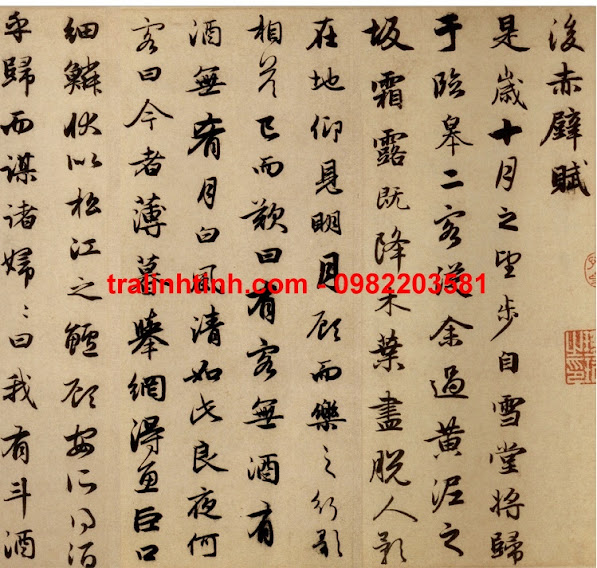 後赤壁賦
是歲十月之望步自雪堂將歸
于臨皋二客從余過黃泥之
坂霜露既降木葉盡脫人影
在地仰見明月顧而樂之行歌
相荅已而歎曰有客無酒有
酒無肴月白風清如此良夜何
客曰今者薄暮舉網得魚巨口
細鱗狀似松江之鱸顧安所得酒
乎歸而謀諸婦〻曰我有斗酒
tralinhtinh.com - 0982203581